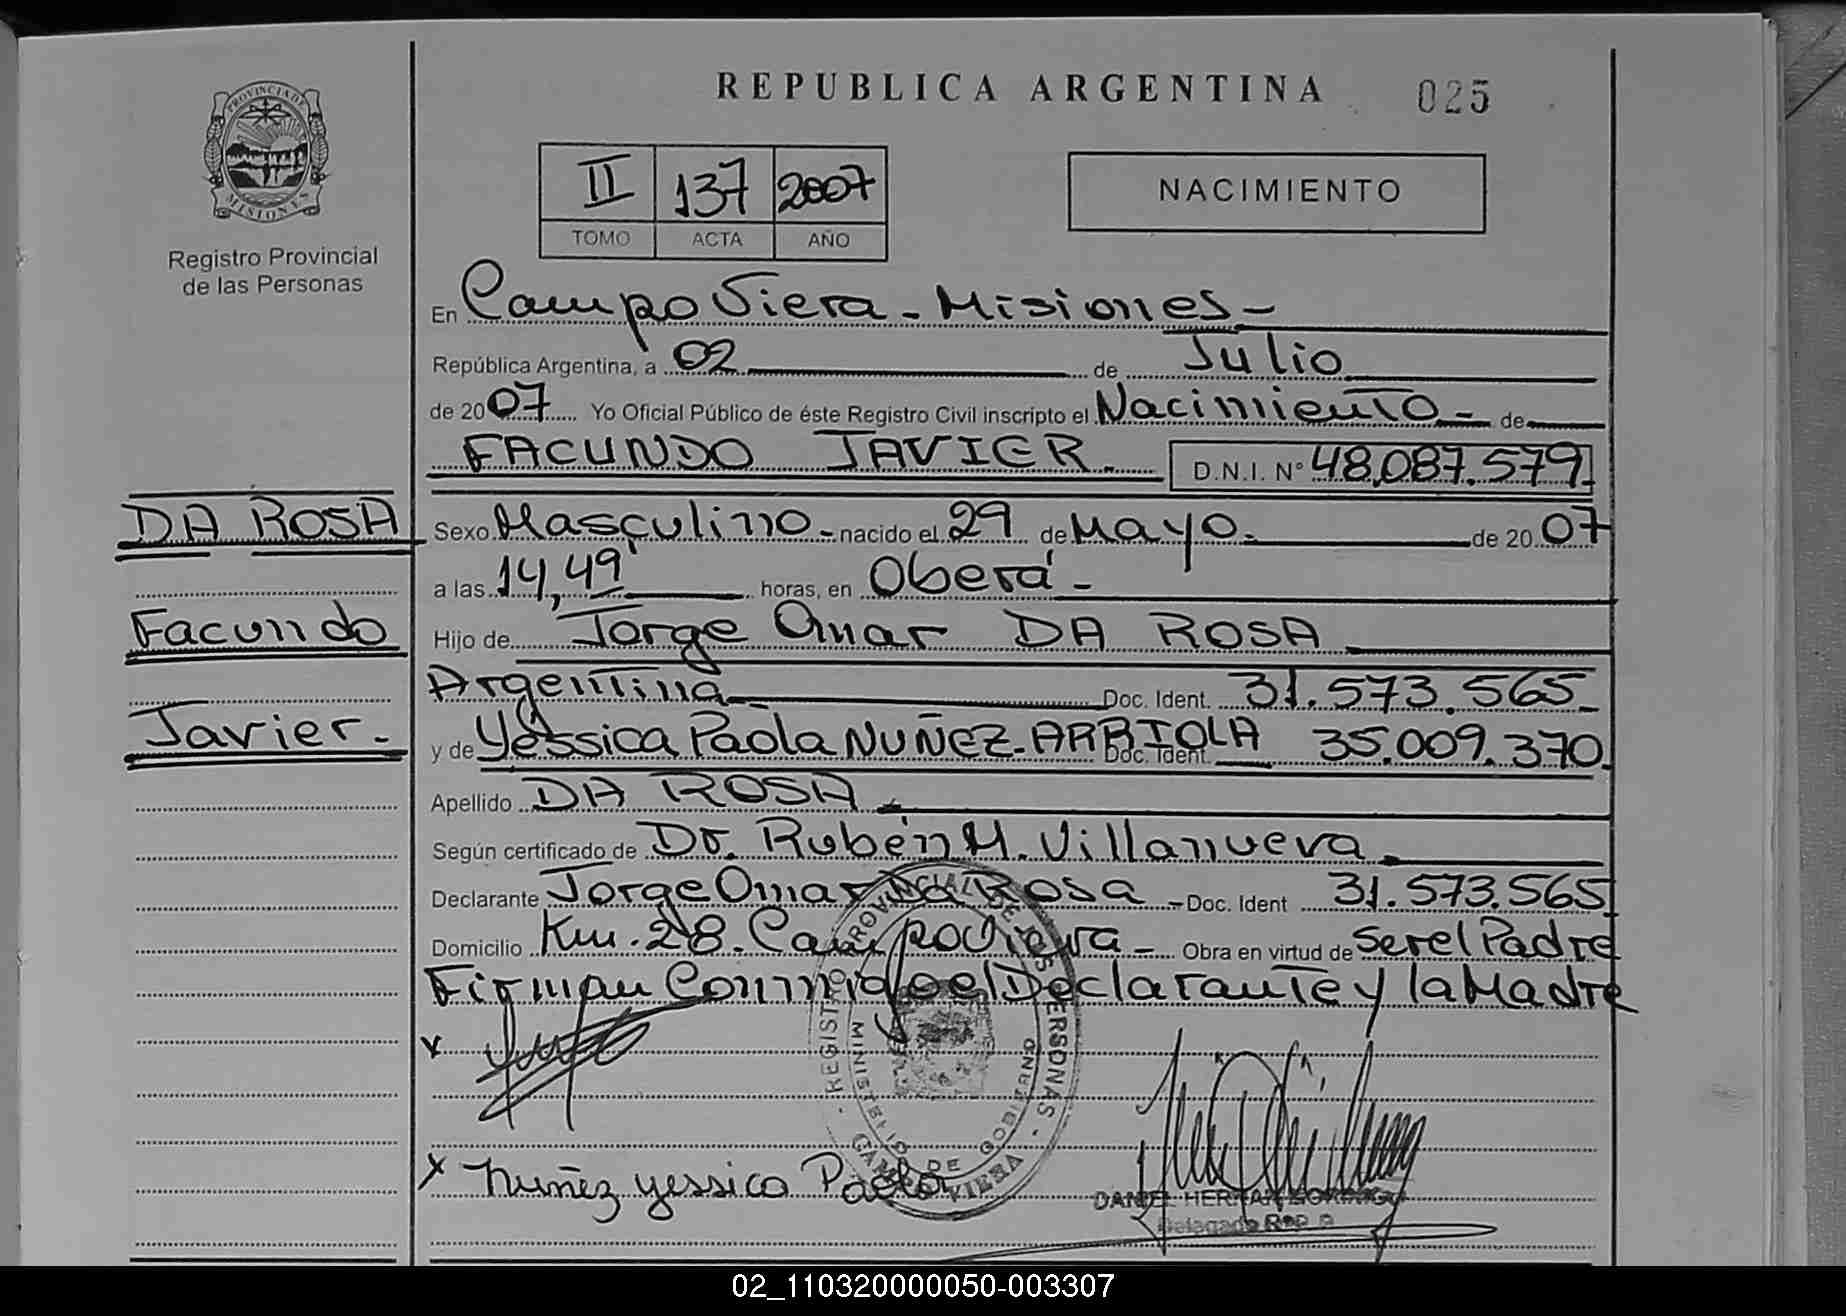 REPUBLICA ARGENTINA
025
PROVINCIA DE
MISIONES
Registro Provincial
de las Personas
II 137 2007
TOMO ACTA AÑO
NACIMIENTO
En Campo Viera - Misiones -
República Argentina, a 02 de Julio
de 2007 Yo Oficial Público de éste Registro Civil inscripto el Nacimiento - de
FACUNDO JAVIER. D.N.I. N° 48.087.579
DA ROSA
Facundo
Javier.-
Sexo Masculino.- nacido el 29 de Mayo.- de 2007
a las 14,49' horas, en Oberá -
Hijo de Jorge Omar DA ROSA
Argentina Doc. Ident. 31.573.565
y de Yessica Paola NUÑEZ-ARRIOLA Doc. Ident. 35.009.370
Apellido DA ROSA
Según certificado de Dr. Rubén M. Villanueva
Declarante Jorge Omar Da Rosa - Doc. Ident 31.573.565
Domicilio Km. 28. Campo Viera - Obra en virtud de Ser el Padre
Firman Conmigo el Declarante y la Madre
x
x Nuñez yessica Paola
REGISTRO PROVINCIAL DE LAS PERSONAS
MINISTERIO DE GOBIERNO
CAMPO VIERA
DANIEL HERNAN
Delegado R.P.P.
02_110320000050-003307